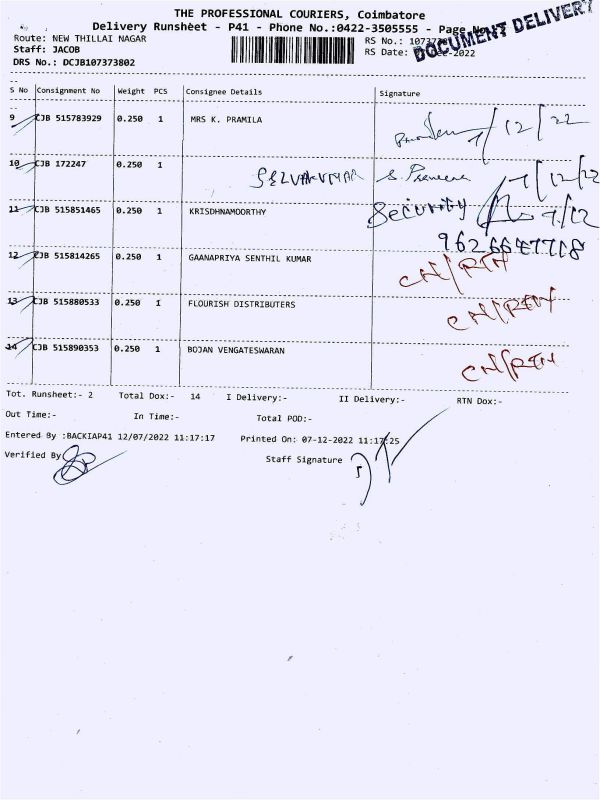 THE PROFESSIONAL COURIERS, Coimbatore
Delivery Runsheet - P41 - Phone No.:0422-3505555 - Page
DOCUMENT DELIVERY
Route: NEW THILLAI NAGAR
RS No.:
Staff: JACOB
RS Date: -2022
DRS No.: DCJB107373802
S No Consignment No Weight PCS Consignee Details Signature
9 CJB 515783929 0.250 1 MRS K. PRAMILA
7/12/22
10 CJB 172247 0.250 1
SELVAKUMAR S. 7/12/22
11 CJB 515851465 0.250 1 KRISDHNAMOORTHY Security 7/12
9626647718
12 CJB 515814265 0.250 1 GAANAPRIYA SENTHIL KUMAR CN/RTN
13 CJB 515880533 0.250 1 FLOURISH DISTRIBUTERS CN/RTN
14 CJB 515890353 0.250 1 BOJAN VENGATESWARAN CN/RTN
Tot. Runsheet:- 2 Total Dox:- 14 I Delivery:- II Delivery:- RTN Dox:-
Out Time:- In Time:- Total POD:-
Entered By :BACKIAP41 12/07/2022 11:17:17 Printed On: 07-12-2022 11:17:25
Verified By Staff Signature